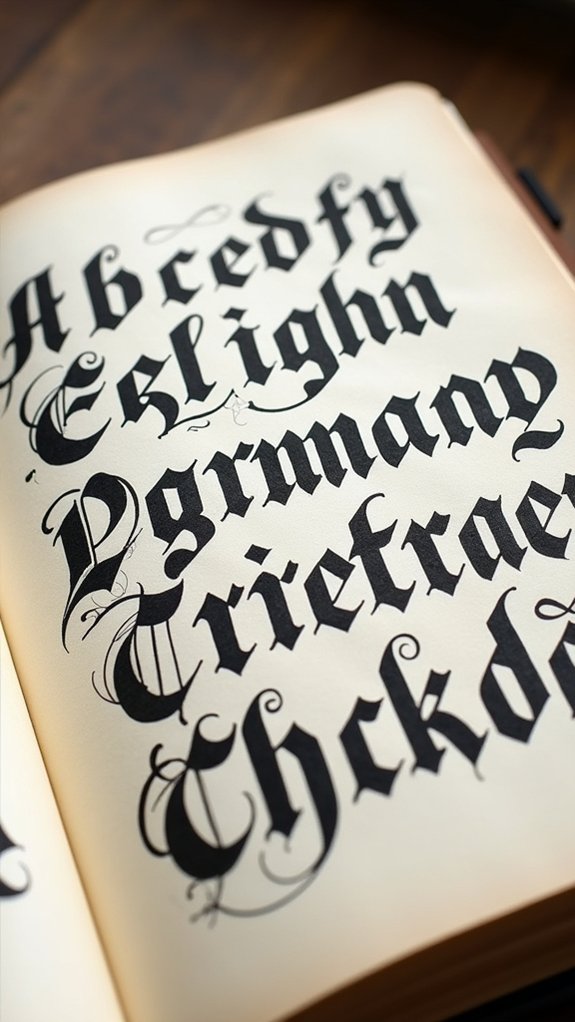 Abcedfy
Eslighn
Pgrmany
Crietrae
Chckd